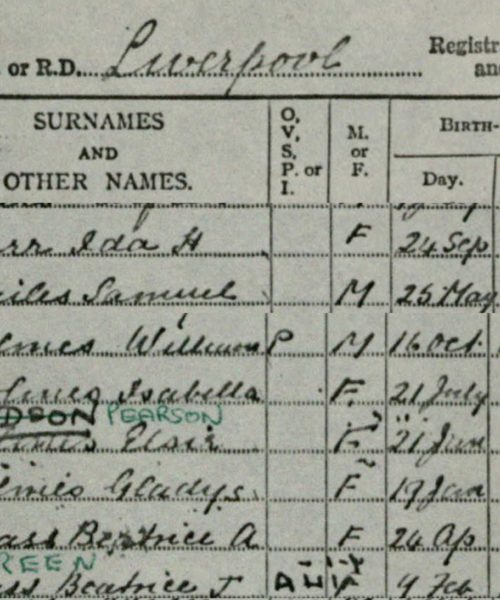 or R.D. Liverpool Registr
an
SURNAMES AND OTHER NAMES. O, V, S, P. or I. M. or F. BIRTH-
Day.
Ida H F 24 Sep
iles Samuel M 25 May
lmes William P M 16 Oct
Isabella F 21 July
DSON PEARSON
Elsie F 21 Jun
Gladys F 19 Jan
ass Beatrice A F 24 Ap
REEN
ass Beatrice J F 9 Feb